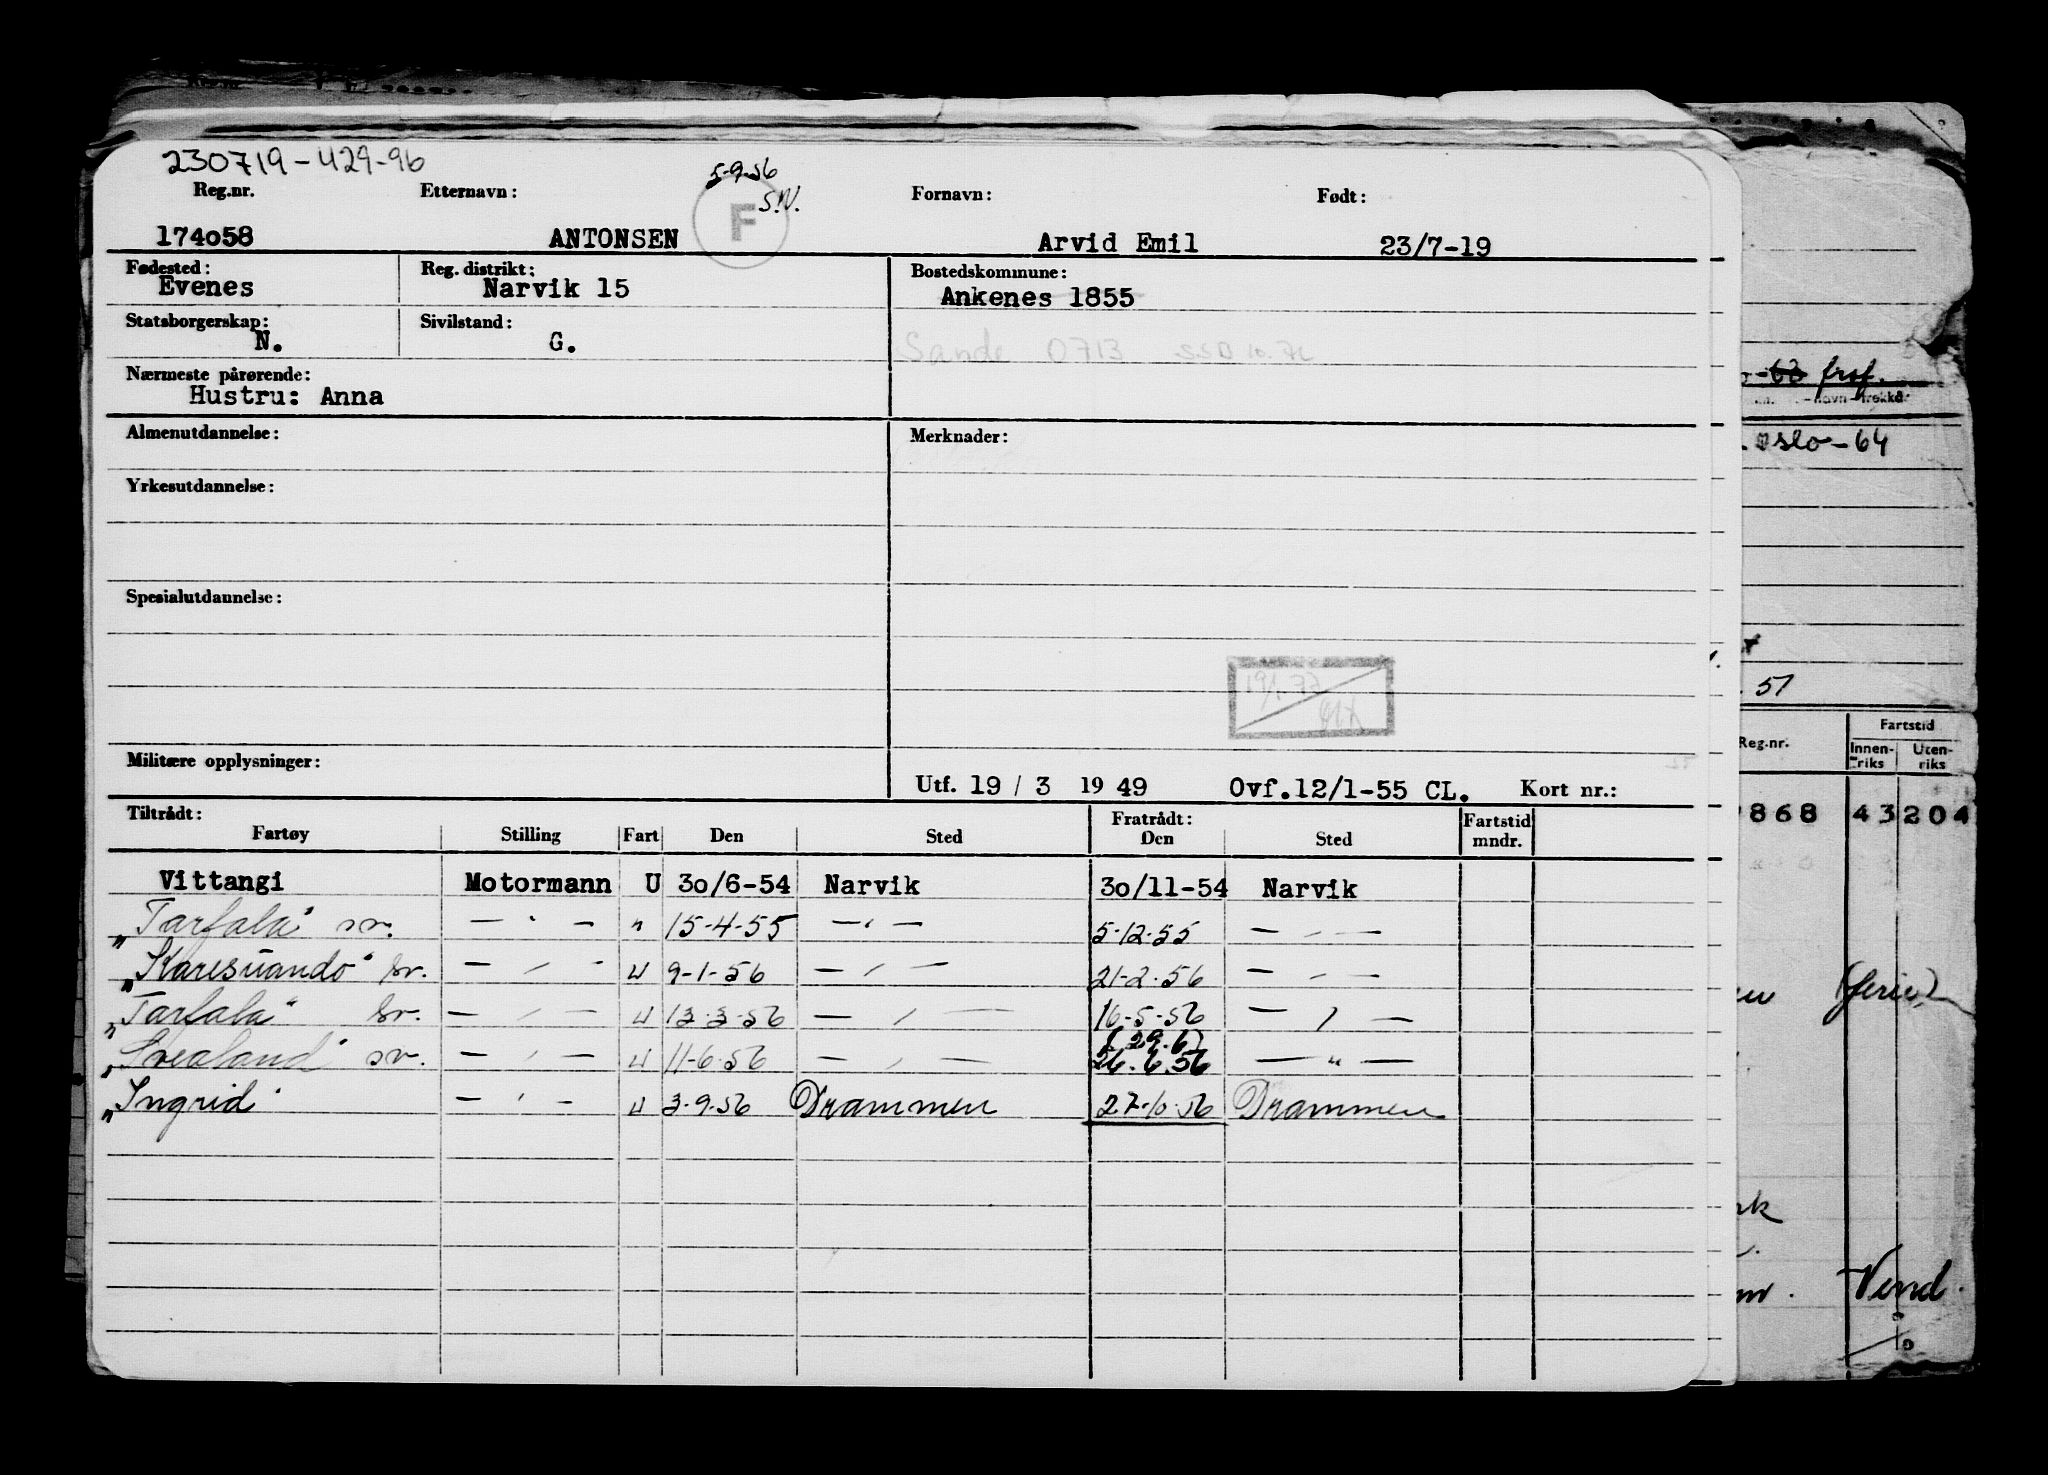 230719-429-96
5-9-56
S.N.
Reg.nr. Etternavn: F Fornavn: Født:
174o58 ANTONSEN Arvid Emil 23/7-19
Fødested: Reg. distrikt: Bostedskommune:
Evenes Narvik 15 Ankenes 1855
Statsborgerskap: Sivilstand:
N. G. Sande 0713
Nærmeste pårørende:
Hustru: Anna
-63 frsf.
-navn-trekka
Almenutdannelse: Merknader: Oslo-64
Yrkesutdannelse:
Spesialutdannelse:
19/1.77
51
Militære opplysninger:
Utf. 19 / 3 19 49 Ovf.12/1-55 CL. Kort nr.:
Reg.nr. Fartstid Innen-riks Uten-riks
868 43 204
Tiltrådt: Fratrådt: Fartstid
Fartøy Stilling Fart Den Sted Den Sted mndr.
Vittangi Motormann U 3o/6-54 Narvik 3o/11-54 Narvik
„Tarfala" sv. — " — " 15-4-55 — " — 5-12-55 — " —
„Karesuando" sv. — " — U 9-1-56 — " — 21-2-56 — " —
„Tarfala" sv. — " — U 13-3-56 — " — 16-5-56 — " —
(29.6)
„Svealand" sv. — " — U 11-6-56 — " — 26.6.56 — " —
„Ingrid" — " — U 3-9-56 Drammen 27-10-56 Drammen
(ferie)
Vend.